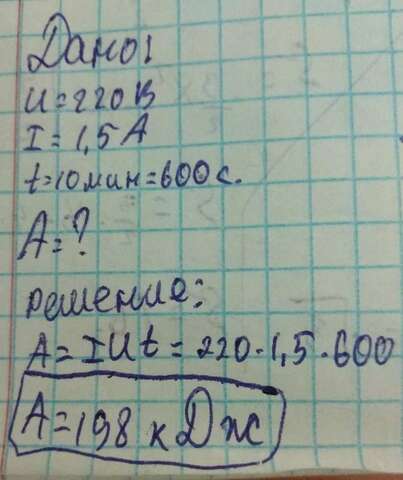 Дано:
U=220В
I=1,5А
t=10мин=600с.
A=?
решение:
A=IUt=220·1,5·600
A=198 кДж